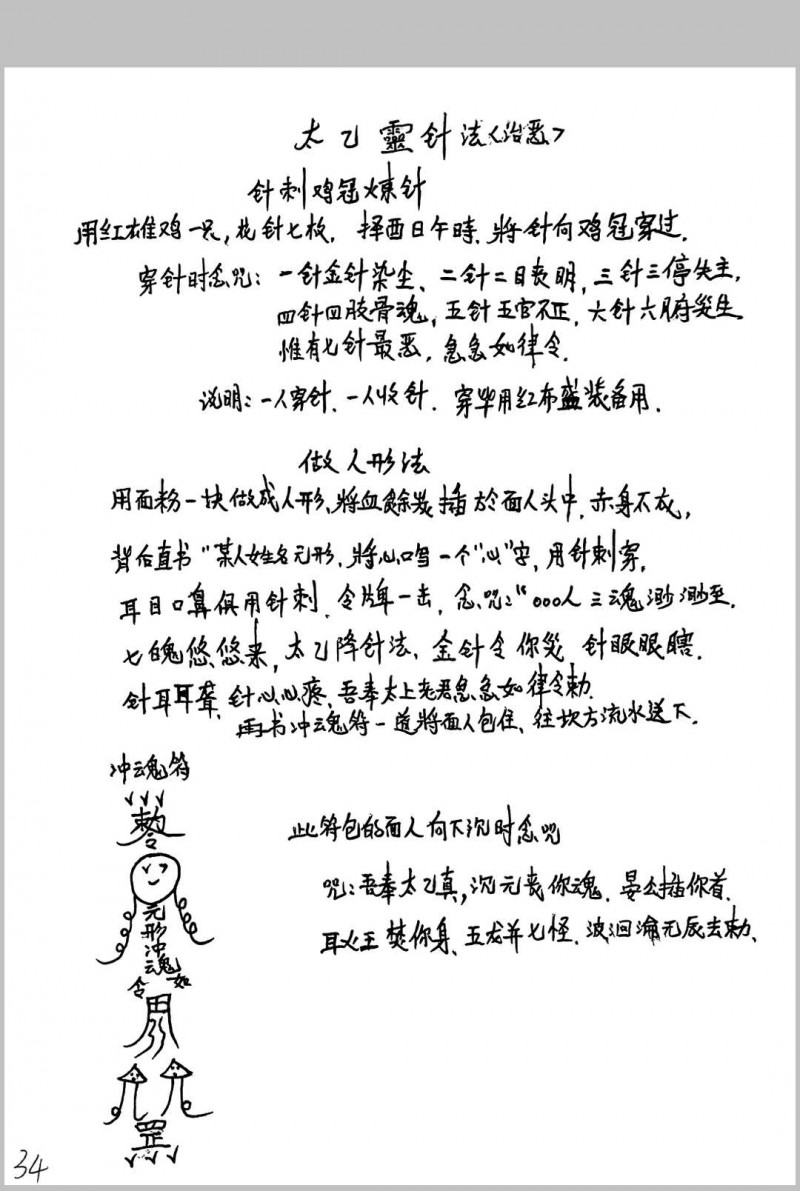 太乙靈针法〈治恶〉
针刺鸡冠煉针
用红雄鸡一只,花针七枚. 择酉日午時.將针向鸡冠穿过.
穿针时念咒: 一针金针染尘、二针二目丧明,三针三停失主,
四针四肢骨魂,五针五官不正,六针六腑災生
惟有七针最恶,急急如律令.
说明:一人穿针.一人收针. 穿毕用红布盛装备用.
做人形法
用面粉一块做成人形、將血餘发插於面人头中.赤身不衣,
背后直书"某人姓名元形.將心口写一个"心"字,用针刺穿.
耳目口鼻俱用针刺.令牌一击,念咒:"000人三魂渺渺至.
七魄悠悠来,太乙降针法.金针令你災.针眼眼瞎.
针耳耳聋.针心心疼.吾奉太上老君急急如律令勅.
再书冲魂符一道將面人包住、往坎方流水送下.
冲魂符
此符包的面人向下沉时念咒
咒:吾奉太乙真,沉元丧你魂.晏公插你首.
王焚你身、五龙并七怪.波洄淪无辰去勅.
元形冲魂
令 如
罡
34